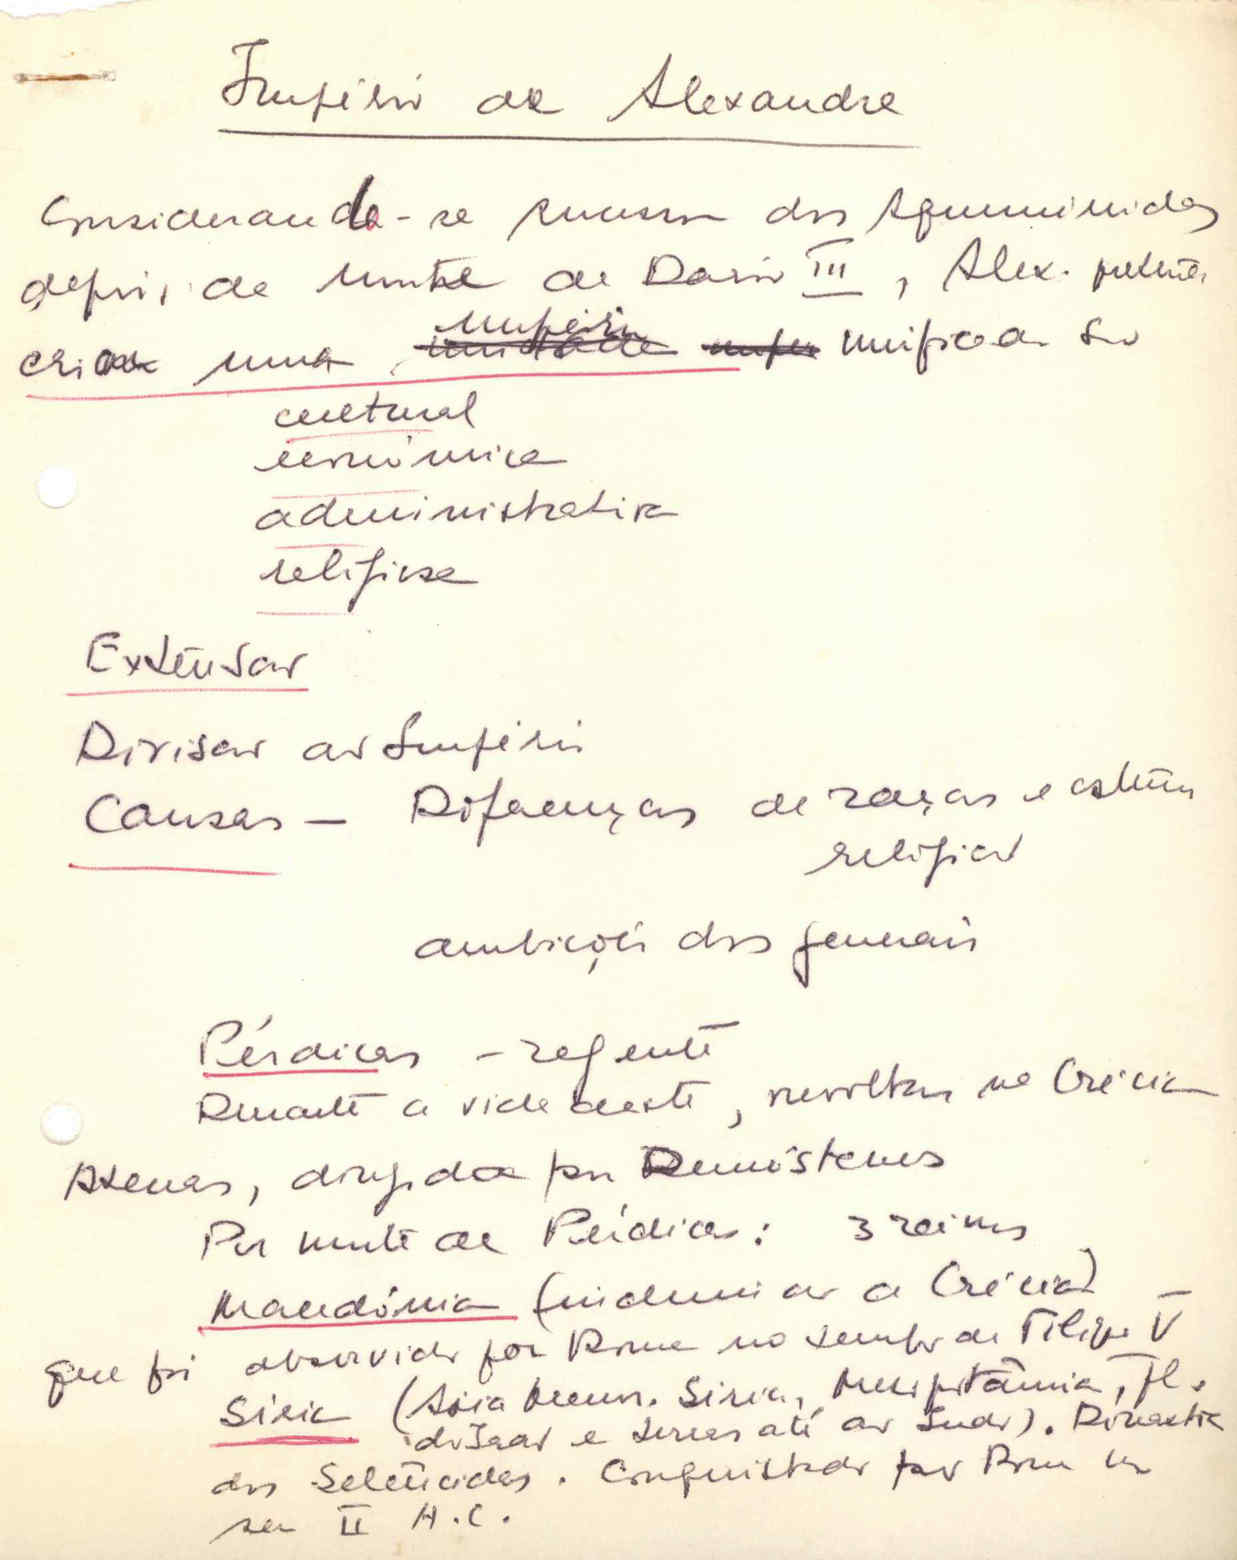 Império de Alexandre
Considerando-se sucessor dos Aqueminidas
depois de morte de Dario III, Alex. pretende
criar uma império unificador
cultural
econômica
administrativa
religiosa
Extensão
Divisão do Império
Causas - Diferenças de raças e
religião
ambições dos generais
Pérdicas - regente
Durante a vida deste, revoltas na Grécia
Atenas, dirigida por Demóstenes
Por morte de Pérdicas: 3 reinos
Macedônia (incluindo a Grécia)
que foi absorvida por Roma no tempo de Filipe V
Síria (Asia Menor, Síria, Mesopotâmia, Pl.
do Irão e terras até ao Indo). Dinastia
dos Selêucidas. Conquistada por Roma no
sec II A.C.